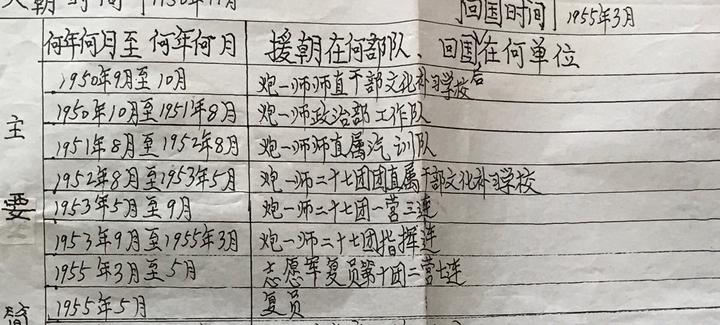 回国时间 1955年3月
何年何月至何年何月 援朝在何部队、回国后在何单位
1950年9月至10月 炮一师师直干部文化补习学校
1950年10月至1951年8月 炮一师政治部工作队
1951年8月至1952年8月 炮一师师直属汽训队
1952年8月至1953年5月 炮一师二十七团团直属干部文化补习学校
1953年5月至9月 炮一师二十七团一营三连
1953年9月至1955年3月 炮一师二十七团指挥连
1955年3月至5月 志愿军复员第十团二营七连
1955年5月 复员
主
要
简